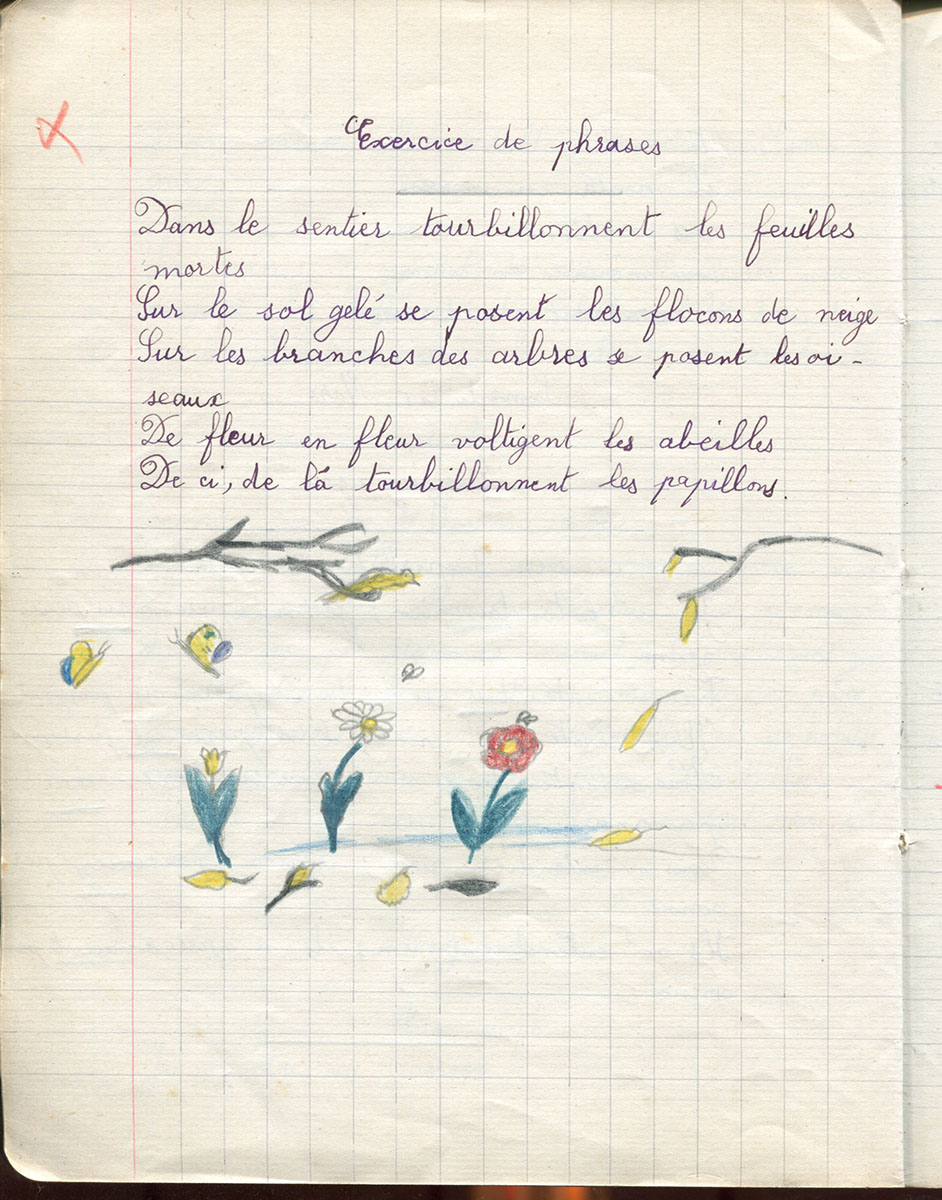 Exercice de phrases
Dans le sentier tourbillonnent les feuilles
mortes
Sur le sol gelé se posent les flocons de neige
Sur les branches des arbres se posent les oi-
seaux
De fleur en fleur voltigent les abeilles
De ci, de là tourbillonnent les papillons.